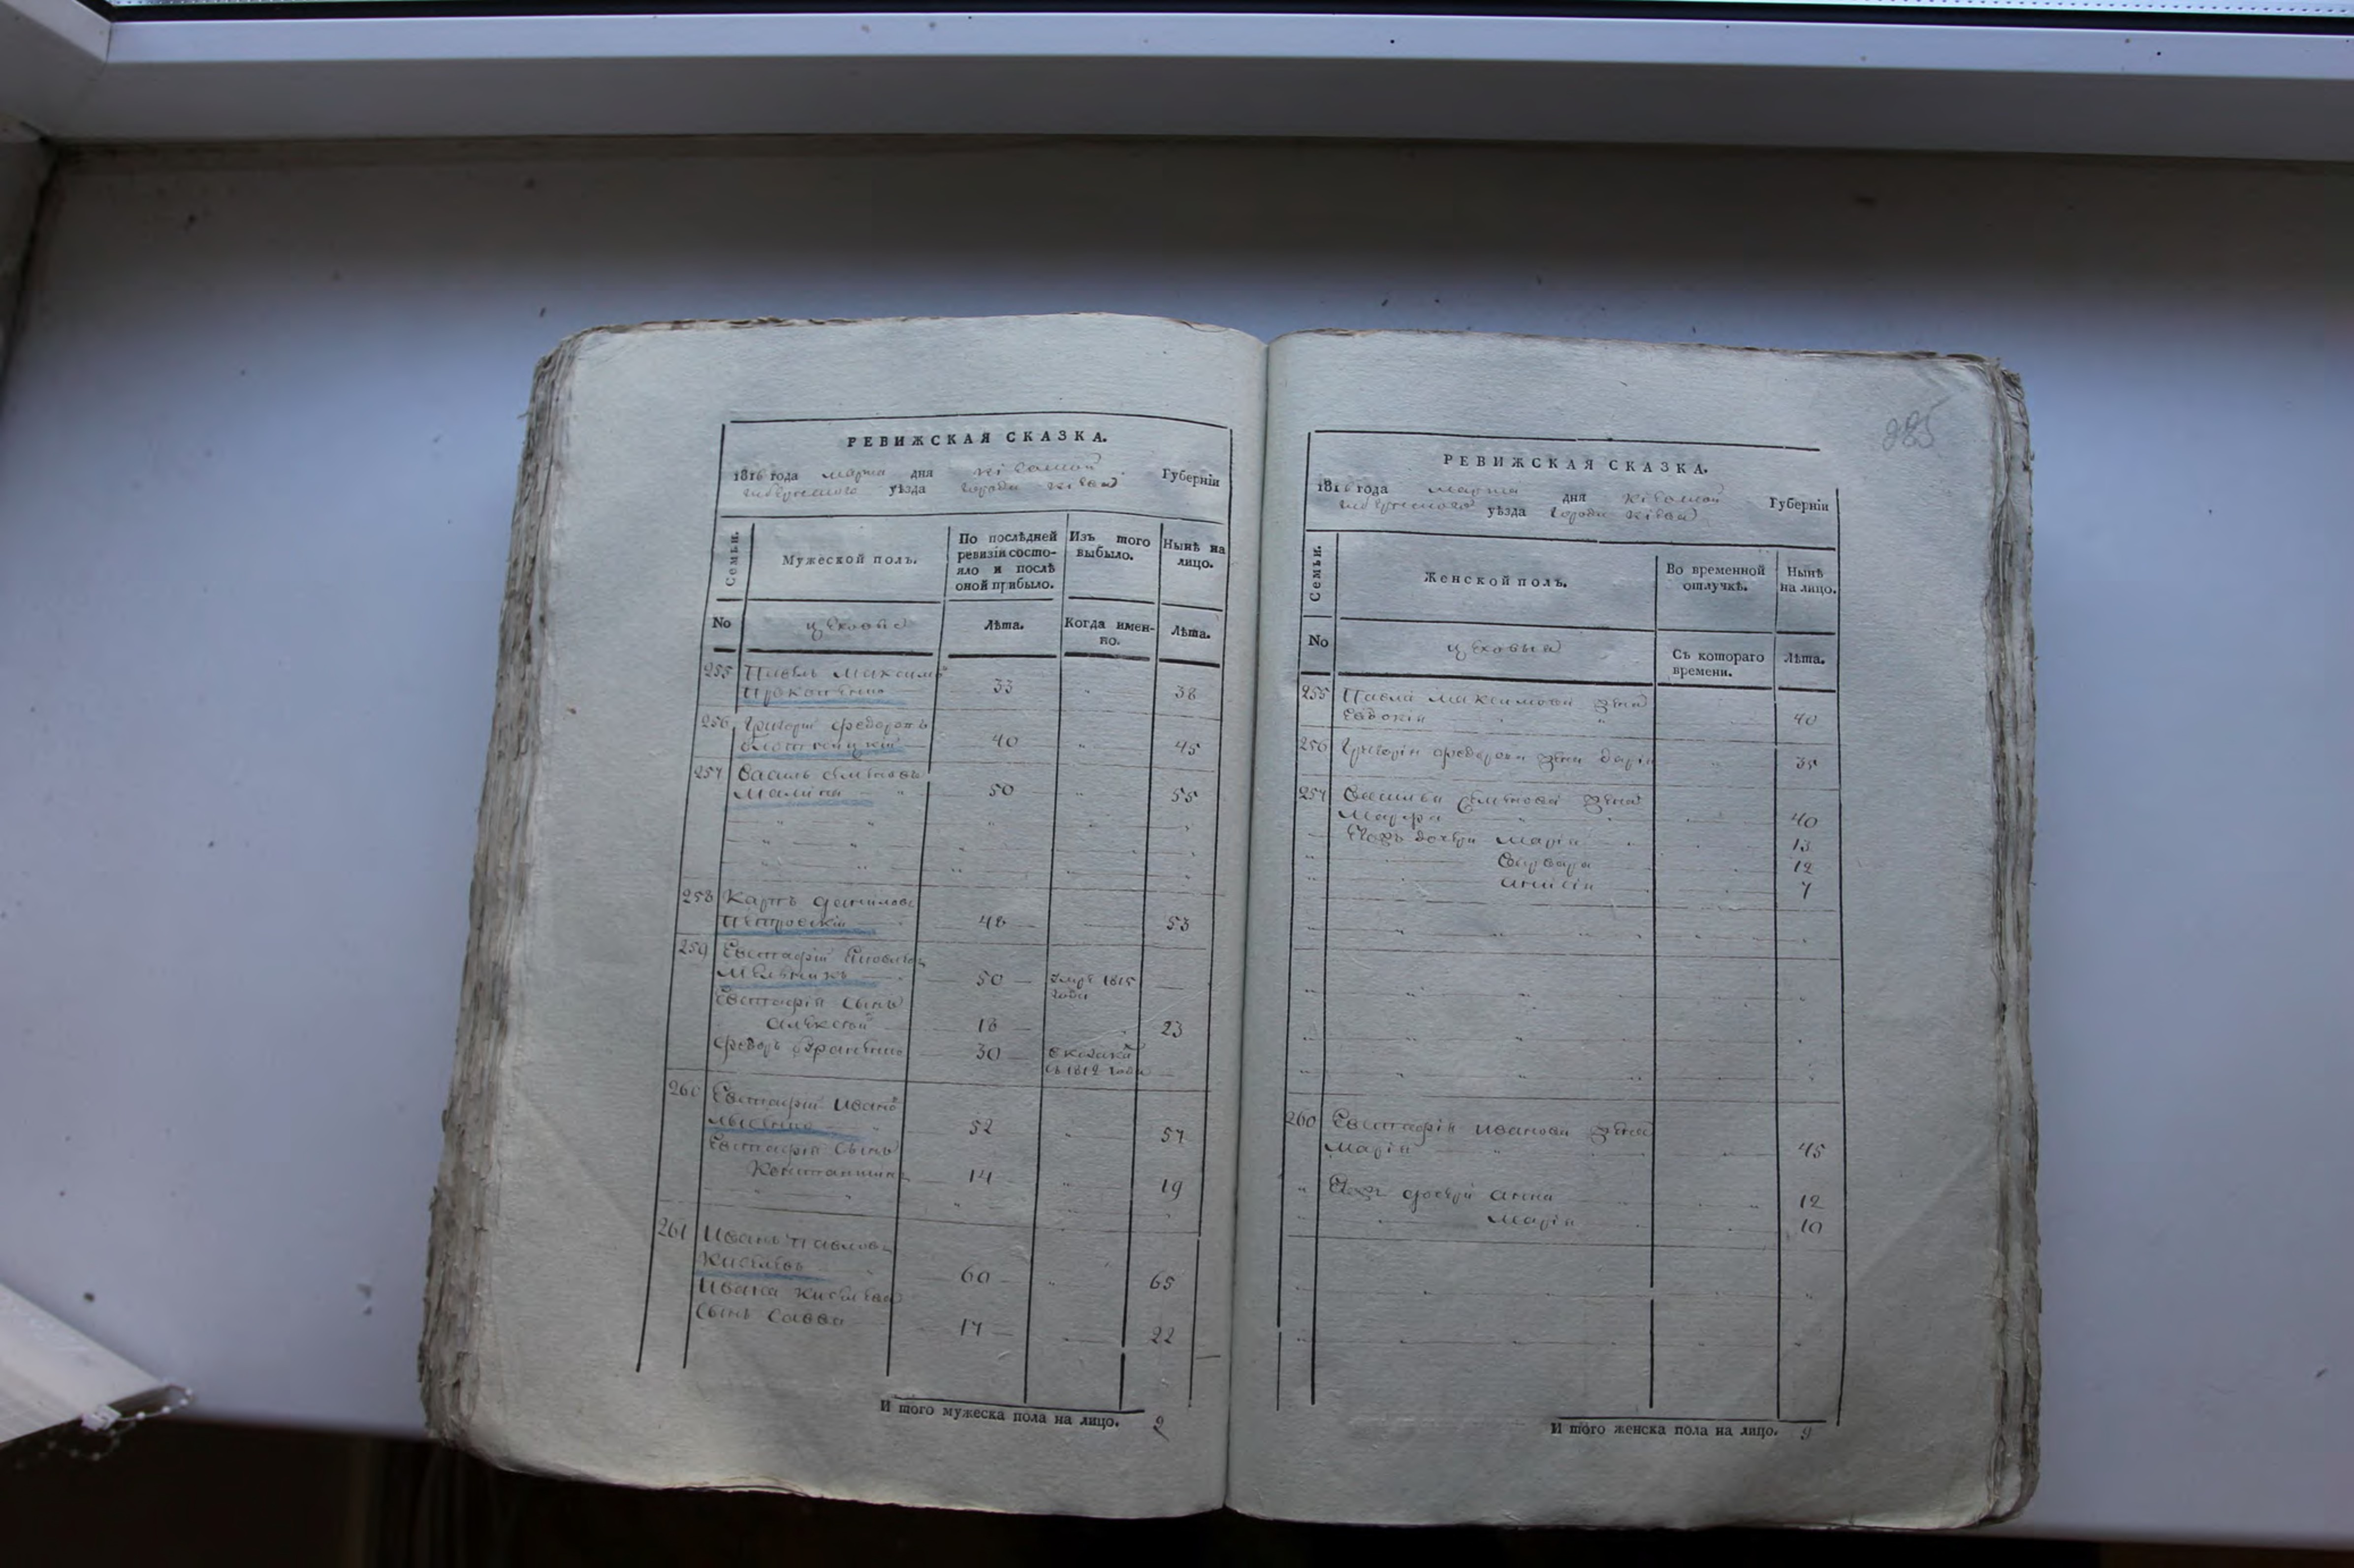 РЕВИЖСКАЯ СКАЗКА.
1816 года марта дня Кіевской Губерніи
уѣзда города Кіева
Семьи.
Мужеской полъ.
По послѣдней ревизіи состо-
яло и послѣ
оной прибыло.
Изъ того
выбыло.
Нынѣ на
лицо.
No
цеховые
Лѣта.
Когда имен-
но.
Лѣта.
255 Павелъ Максимовъ
Прокопенко 33 38
256 Григорій Федоровъ
40 45
257 Василь Семеновъ
Малина 50 55
258 Карпъ Даниловъ
Петровскій 48 53
259 Евстафій Яковлевъ
Мельникъ 50 умре 1815 —
года
Евстафія сынъ
Алексей 18 23
Федоръ 30
съ 1812 года —
260 Евстафій Ивановъ
Лысенко 52 57
Евстафія сынъ
Константинъ 14 19
261 Иванъ Павловъ
Киселевъ 60 65
Ивана Киселева
сынъ Савва 17 22
И того мужеска пола на лицо. 9
285
РЕВИЖСКАЯ СКАЗКА.
1816 года марта дня Кіевской Губерніи
уѣзда города Кіева
Семьи.
Женской полъ.
Во временной
отлучкѣ.
Нынѣ
на лицо.
No
цеховыя
Съ котораго
времени.
Лѣта.
255 Павла Максимова жена
Евдокія 40
256 Григорія Федорова жена Дарія 35
257 Василья Семенова жена
Марфа 40
Ихъ дочери Марія 13
Варвара 12
Анисія 7
260 Евстафія Иванова жена
Марія 45
Ихъ дочери Анна 12
Марія 10
И того женска пола на лицо. 9